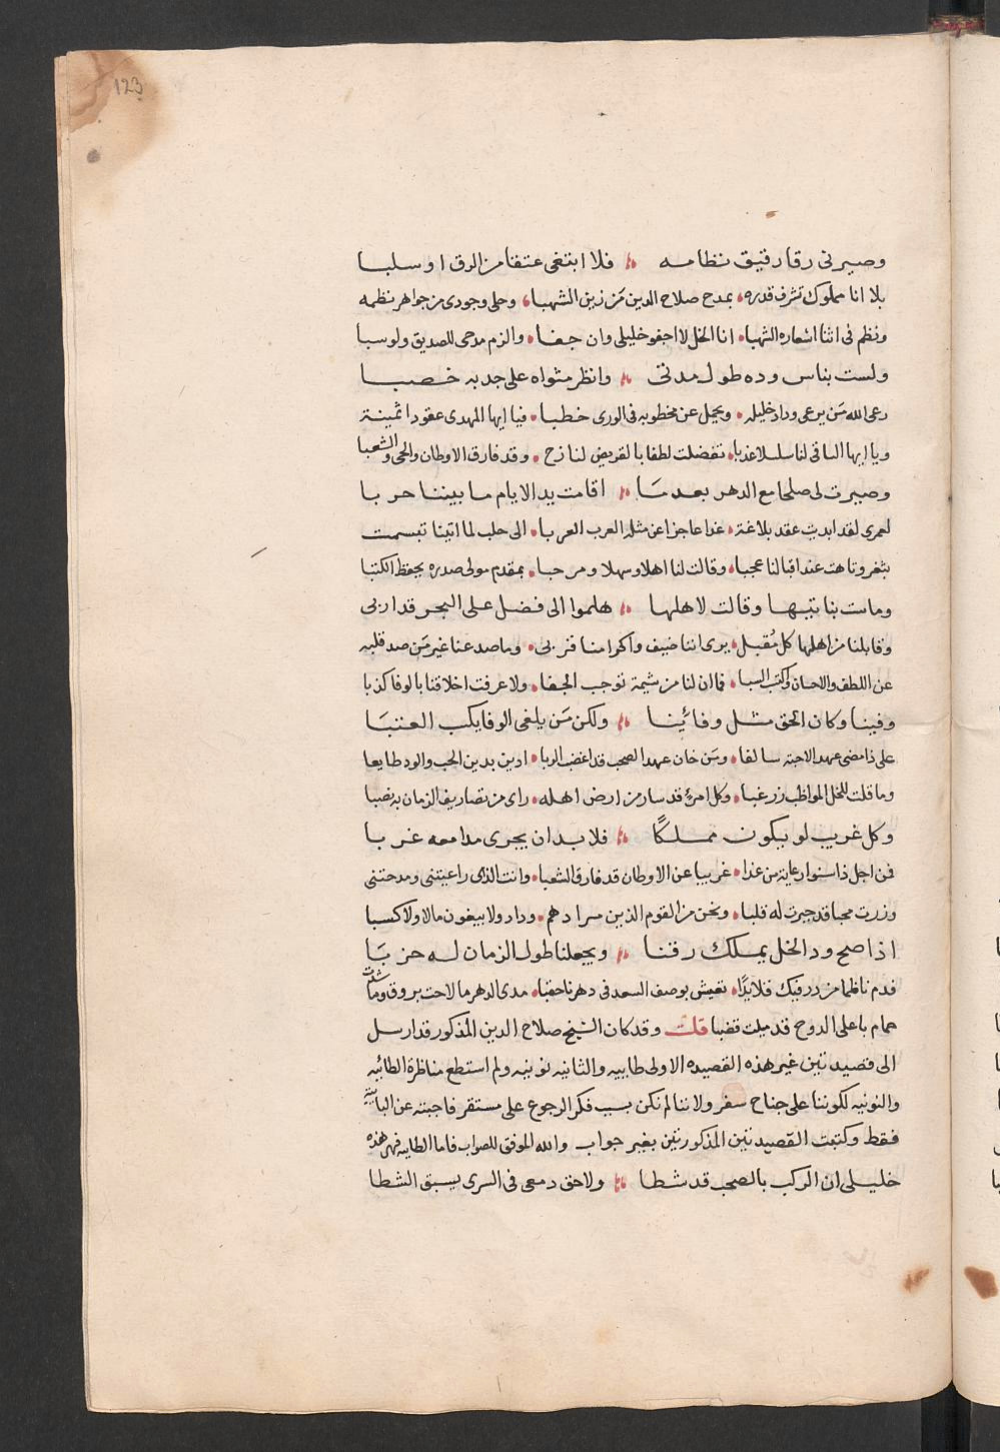 123
وصيرنى رقا رقيق نظامه فلا ابتغى عتقا من الرق او سلبا
بلا انا مملوك تشرف قدره بمدح صلاح الدين من زين الشهبا وحلى وجودى من جواهر نظمه
ونظم فى اثنا اشعاره الشهبا انا الخل لا اجفو خليلى وان جفا والزم مدحى للصديق ولو سبا
ولست بناس وده طول مدتى وانظر مثواه على جدبه خصبا
رعى الله من يرعى وداد خليله ويحمل عن مخطوبه فى الورى خطبا فيا ايها المهدى عقودا ثمينة
ويا ايها الساقى لنا سلسلا عذبا تفضلت لطفا بالقريض لنازح وقد فارق الاوطان والحى والشعبا
وصيرت لى صلحا مع الدهر بعد ما اقامت يد الايام ما بيننا حربا
لعمرى لقد ابديت عقد بلاغة غدا عاجزا عن مثله العرب العربا الى حلب لما اتينا تبسمت
بثغر وتاهت عند اقبالنا عجبا وقالت لنا اهلا وسهلا ومرحبا بمقدم مولى صدره يحفظ الكتبا
وماست بنا تيها وقالت لاهلها هلموا الى فضل على البحر قد اربى
وقابلنا من اهلها كل مقبل يرى اننا ضيف واكرامنا قربى وما صد عنا غير من صد قلبه
عن اللطف والاحسان واكتب السبا فما ان لنا من شيمة توجب الجفا ولا عرفت اخلاقنا بالوفا كذبا
وفينا وكان الحق مثل وفائنا ولكن من يلغى الوفا يكسب العتبا
على ذا مضى عهد الاحبه سالفا ومن خان عهد الصحب قد اغضب الربا ادين بدين الحب والود طايعا
وما قلت للخل المواظب زر غبا وكل امرئ قد سار من ارض اهله راى من تصاريف الزمان به نصبا
وكل غريب لو يكون مملكا فلا بد ان يجرى مدامعه غربا
فمن اجل ذا سنوا رعاية من غدا غريبا عن الاوطان قد فارق الشعبا وانت الذى راعيتنى ومدحتنى
وزرت محبا قد جبرت له قلبا ونحن من القوم الذين مرادهم وداد ولا يبغون مالا ولا كسبا
اذا صح ود الخل يملك رقنا ويجعلنا طول الزمان له حزبا
فدم ناظما من در فيك قلايدا تعيش بوصف السعد فى دهرنا حقبا مدى الدهر ما لاحت بروق وما شدت
حمام باعلى الدوح قد ميلت قضبا قلت وقد كان الشيخ صلاح الدين المذكور قد ارسل
الى قصيدتين غير هذه القصيده الاولى طاييه والثانيه نونيه ولم استطع مناظرة الطائيه
والنونيه لكوننا على جناح سفر ولاننا لم نكن بسبب فكر الرجوع على مستقر فاجبته عن البائية
فقط وكتبت القصيدتين المذكورتين بغير جواب والله الموفق للصواب فاما الطاييه فهى هذه
خليلى ان الركب بالصحب قد شطا ولاحق دمعى فى السرى يسبق الشطا